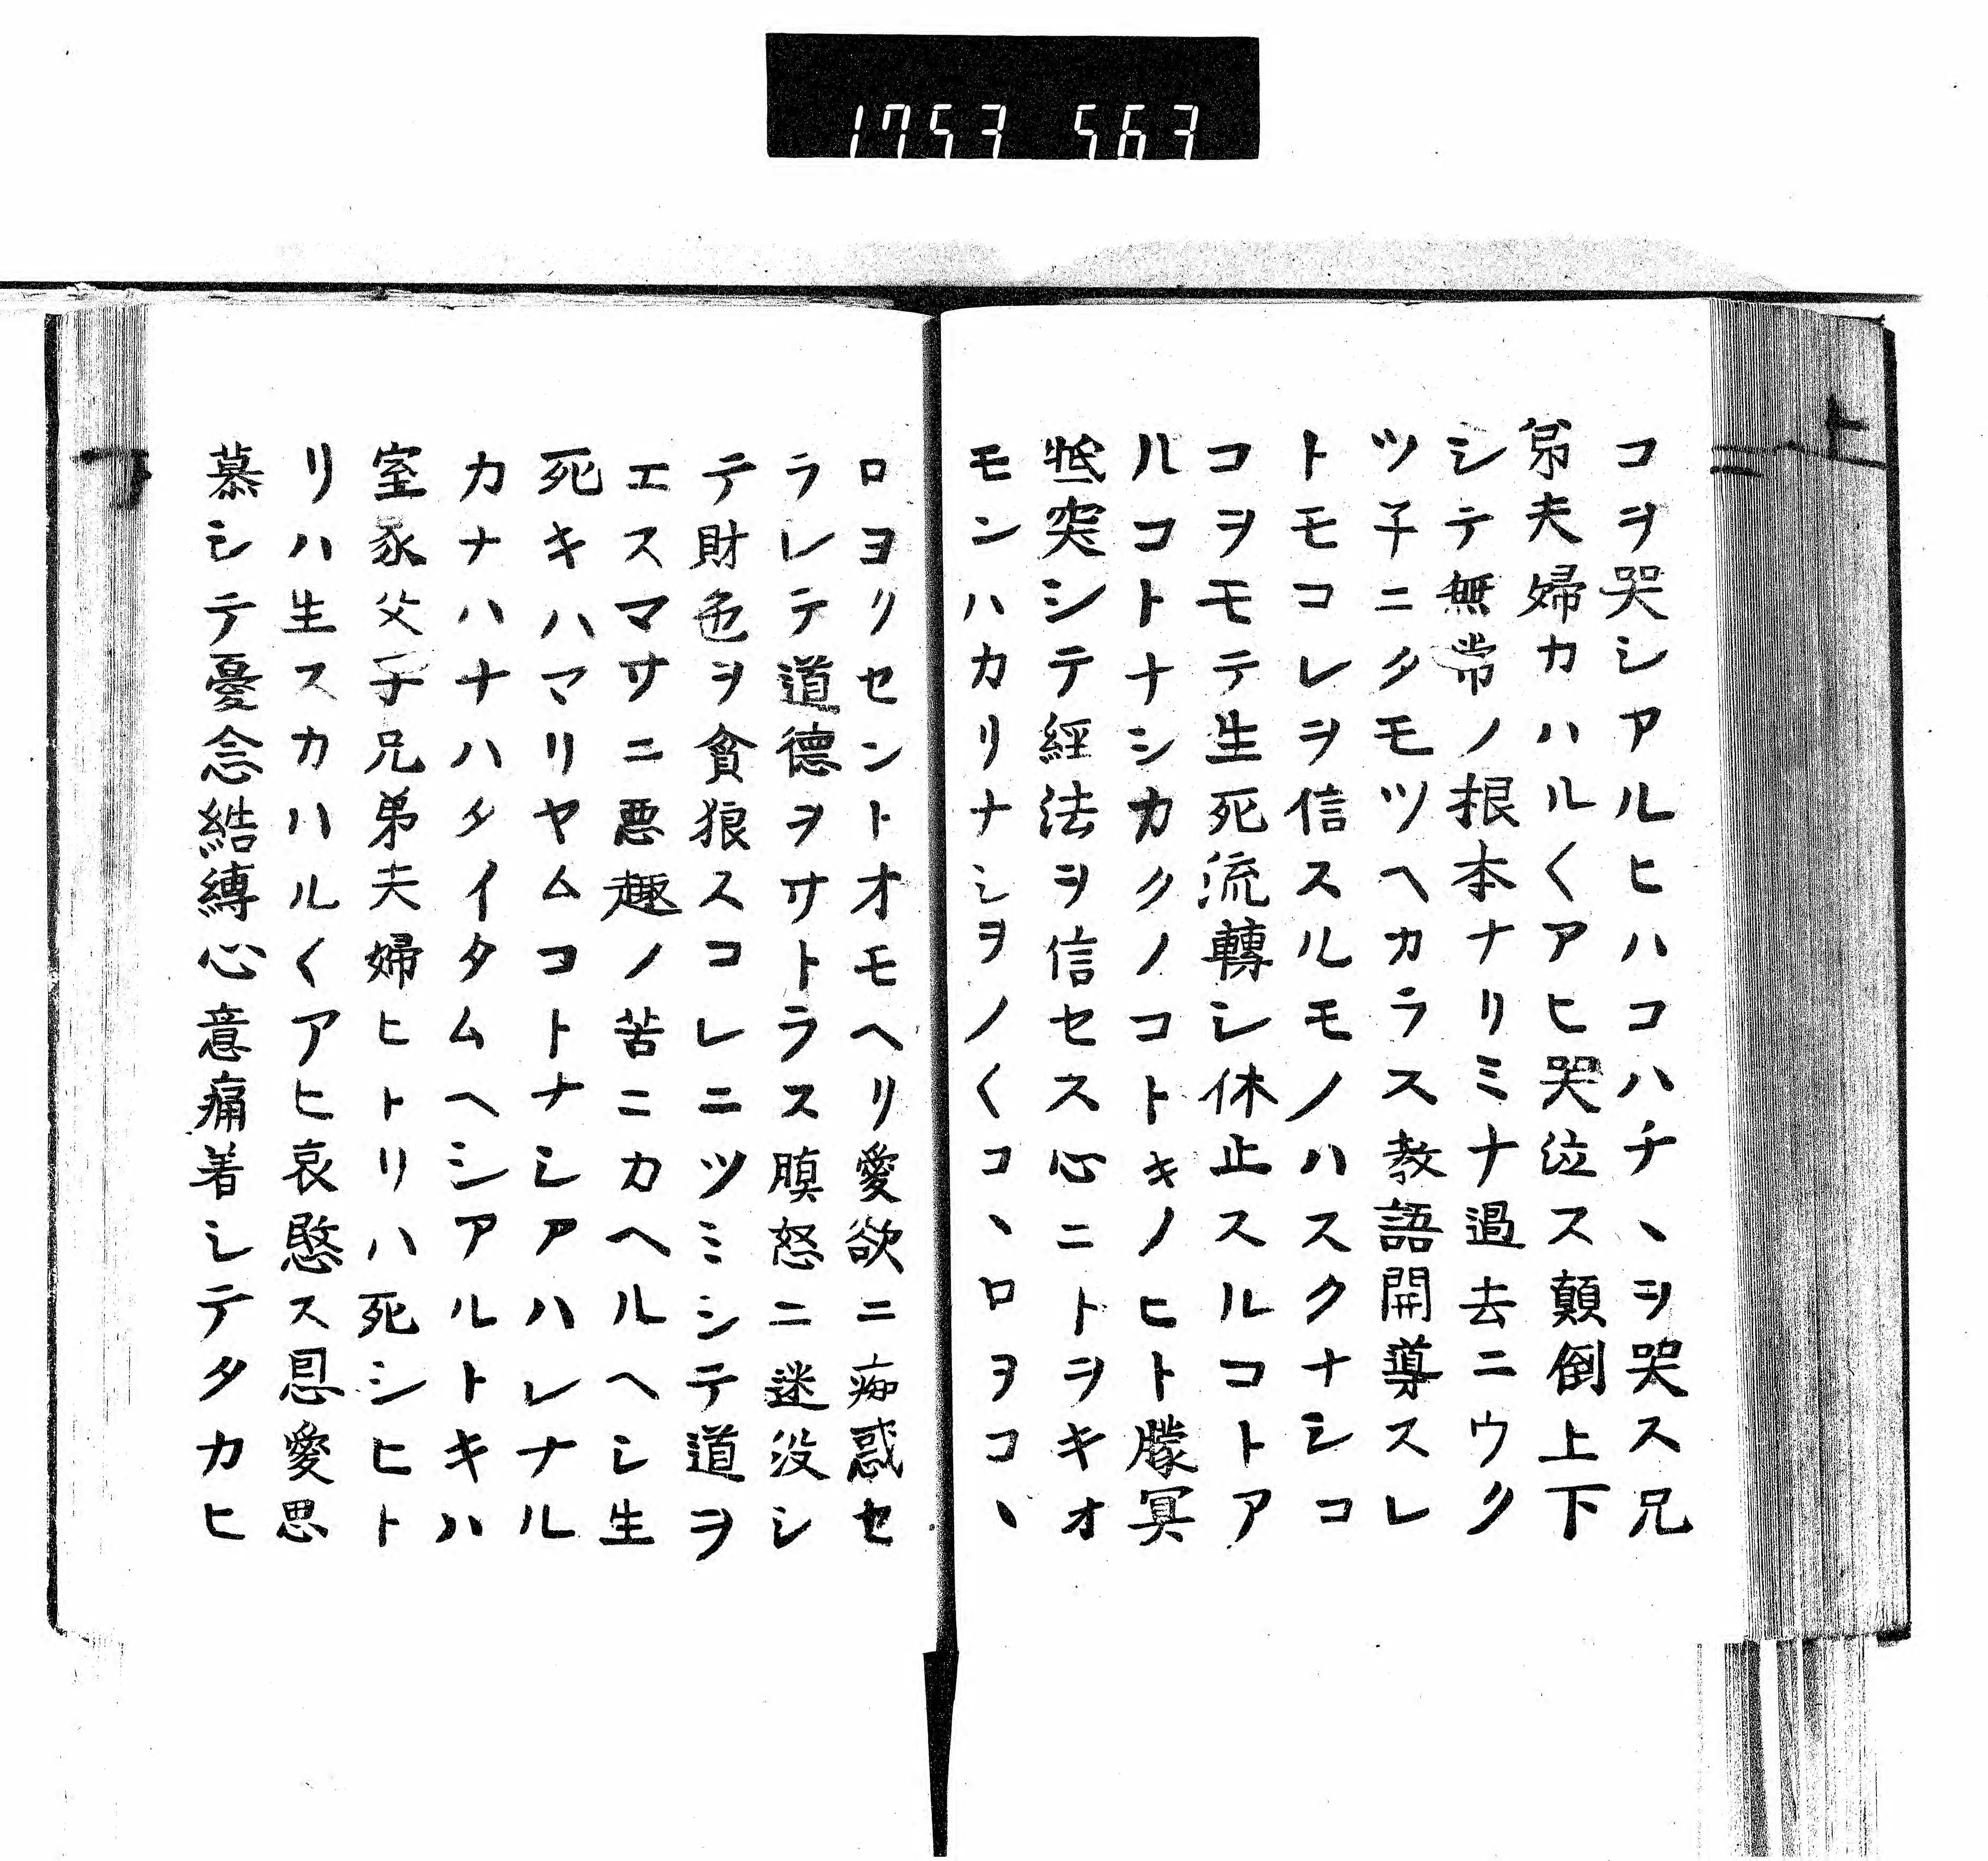 1753 563
上
コヲ哭シアルヒハコハチヽヲ哭ス兄
弟夫婦カハル〱アヒ哭泣ス顛倒上下
シテ無常ノ根本ナリミナ過去ニウク
ツ子ニタモツヘカラス教語開導スレ
トモコレヲ信スルモノハスクナシコ
コヲモテ生死流轉シ休止スルコトア
ルコトナシカクノコトキノヒト矇冥
抵突シテ經法ヲ信セス心ニトヲキオ
モンハカリナシヲノ〱コヽロヲコヽ
ロヨリセントオモヘリ愛欲ニ痴惑セ
ラレテ道德ヲサトラス瞋怒ニ迷没シ
テ財色ヲ貪狼スコレニツミシテ道ヲ
エスマサニ悪趣ノ苦ニカヘルヘシ生
死キハマリヤムコトナシアハレナル
カナハナハタイタムヘシアルトキハ
室家父子兄弟夫婦ヒトリハ死シヒト
リハ生スカハル〱アヒ哀愍ス恩愛思
慕シテ憂念結縛心意痛着シテタカヒ